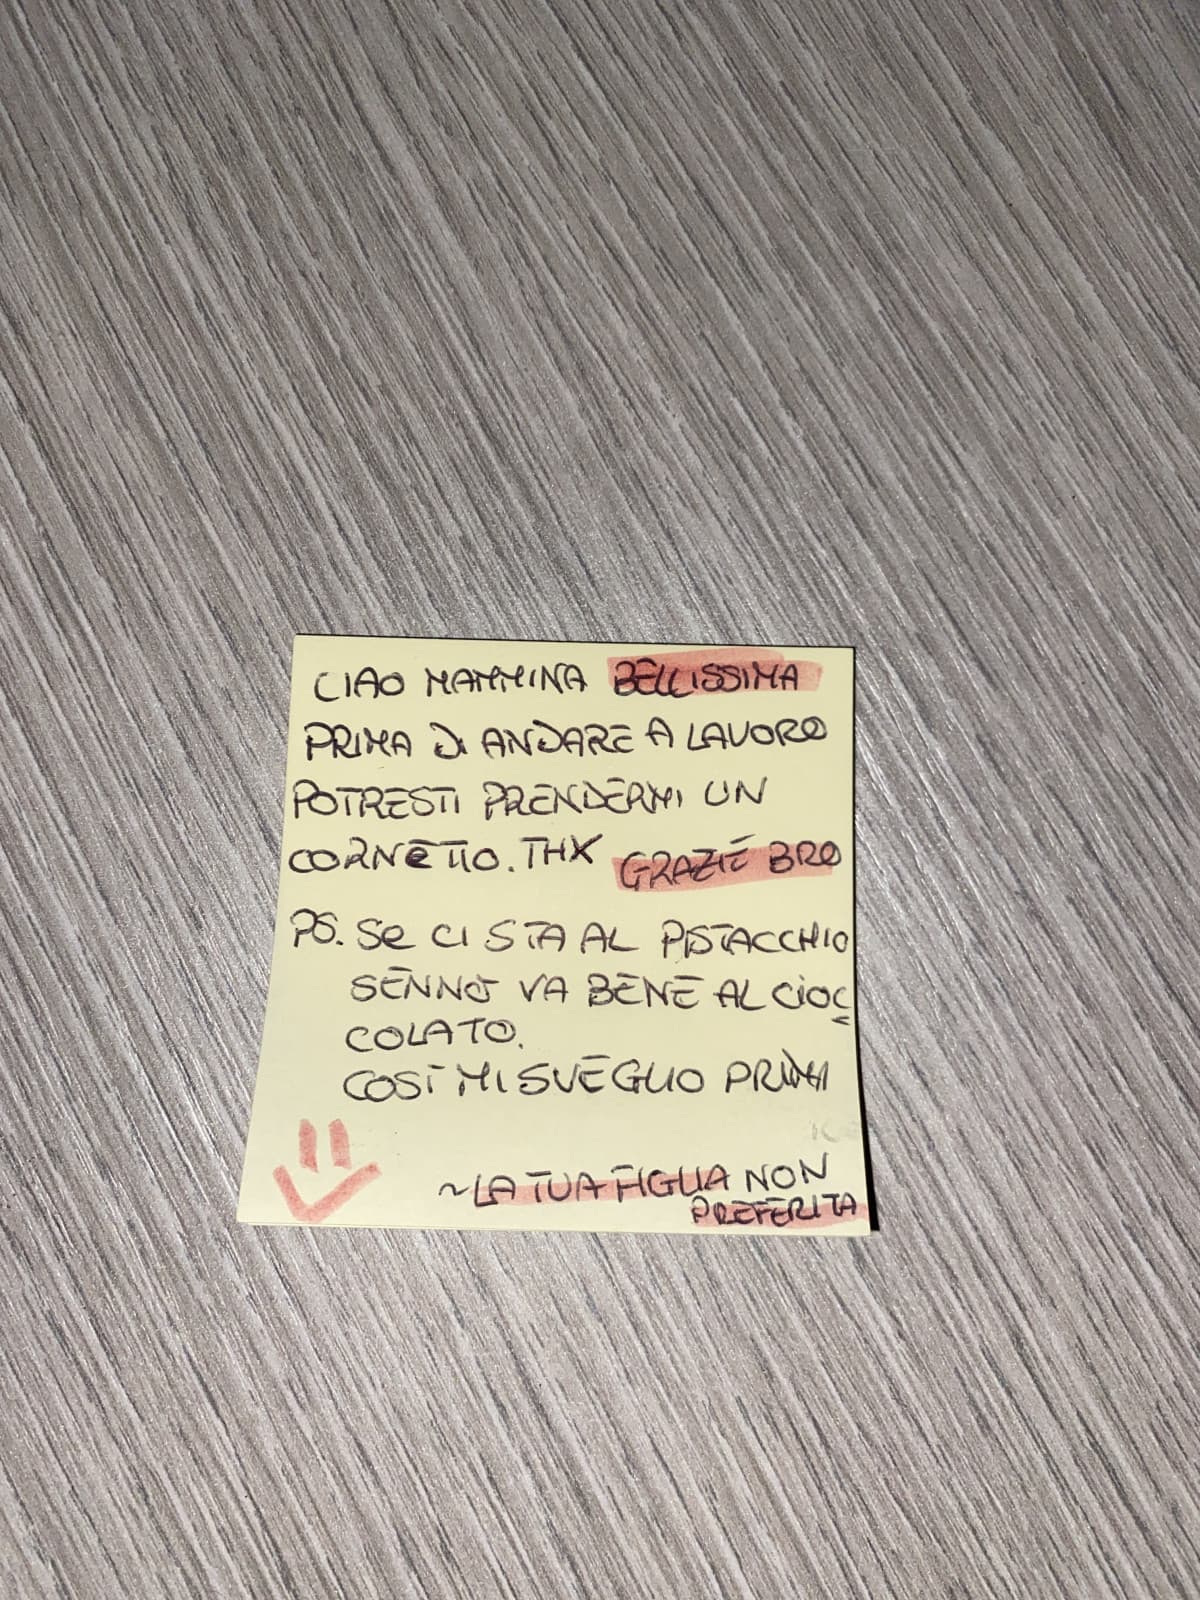 CIAO MAMMINA BELLISSIMA
PRIMA DI ANDARE A LAVORO
POTRESTI PRENDERMI UN
CORNETTO. THX GRAZIE BRO
PS. Se CI STA AL PISTACCHIO
SENNÒ VA BENE AL CIOC
COLATO.
COSÌ MI SVEGLIO PRIMA
~LA TUA FIGLIA NON
PREFERITA